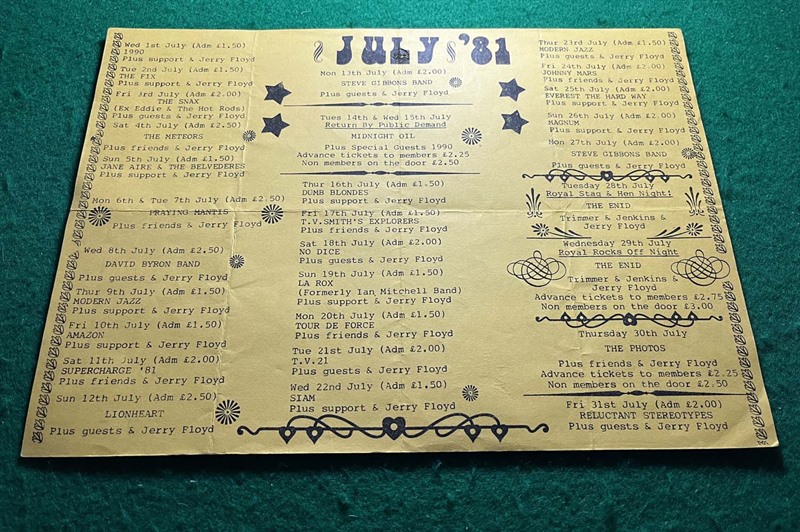 Wed 1st July (Adm £1.50)
1990
Plus support & Jerry Floyd
Tue 2nd July (Adm £1.50)
THE FIX
Plus support & Jerry Floyd
Fri 3rd July (Adm £2.00)
THE SNAX
(Ex Eddie & The Hot Rods)
Plus guests & Jerry Floyd
Sat 4th July (Adm £2.00)
THE METEORS
Plus friends & Jerry Floyd
Sun 5th July (Adm £1.50)
JANE AIRE & THE BELVEDERES
Plus support & Jerry Floyd
Mon 6th & Tue 7th July (Adm £1.50)
PRAYING MANTIS
Plus friends & Jerry Floyd
Wed 8th July (Adm £2.00)
DAVID BYRON BAND
Plus guests & Jerry Floyd
Thur 9th July (Adm £1.50)
MODERN JAZZ
Plus support & Jerry Floyd
Fri 10th July (Adm £2.00)
AMAZON
Plus support & Jerry Floyd
Sat 11th July (Adm £2.00)
SUPERCHARGE '81
Plus friends & Jerry Floyd
Sun 12th July (Adm £2.50)
LIONHEART
Plus guests & Jerry Floyd
JULY '81
Mon 13th July (Adm £2.00)
STEVE GIBBONS BAND
Plus guests & Jerry Floyd
Tues 14th & Wed 15th July
Return By Public Demand
MIDNIGHT OIL
Plus Special Guests 1990
Advance tickets to members £2.25
Non members on the door £2.50
Thur 16th July (Adm £1.50)
DUMB BLONDES
Plus support & Jerry Floyd
Fri 17th July (Adm £1.50)
T.V.SMITH'S EXPLORERS
Plus friends & Jerry Floyd
Sat 18th July (Adm £2.00)
NO DICE
Plus guests & Jerry Floyd
Sun 19th July (Adm £1.50)
LA ROX
(Formerly Ian Mitchell Band)
Plus support & Jerry Floyd
Mon 20th July (Adm £1.50)
TOUR DE FORCE
Plus friends & Jerry Floyd
Tue 21st July (Adm £2.00)
T.V.21
Plus guests & Jerry Floyd
Wed 22nd July (Adm £1.50)
SIAM
Plus support & Jerry Floyd
Thur 23rd July (Adm £1.50)
MODERN JAZZ
Plus guests & Jerry Floyd
Fri 24th July (Adm £2.00)
JOHNNY MARS
Plus friends & Jerry Floyd
Sat 25th July (Adm £2.00)
EVEREST THE HARD WAY
Plus support & Jerry Floyd
Sun 26th July (Adm £2.00)
MAGNUM
Plus support & Jerry Floyd
Mon 27th July (Adm £2.00)
STEVE GIBBONS BAND
Plus guests & Jerry Floyd
Tuesday 28th July
Royal Stag & Hen Night!
THE ENID
Trimmer & Jenkins &
Jerry Floyd
Wednesday 29th July
Royal Rocks Off Night
THE ENID
Trimmer & Jenkins &
Jerry Floyd
Advance tickets to members £2.75
Non members on the door £3.00
Thursday 30th July
THE PHOTOS
Plus friends & Jerry Floyd
Advance tickets to members £2.25
Non members on the door £2.50
Fri 31st July (Adm £2.00)
RELUCTANT STEREOTYPES
Plus guests & Jerry Floyd